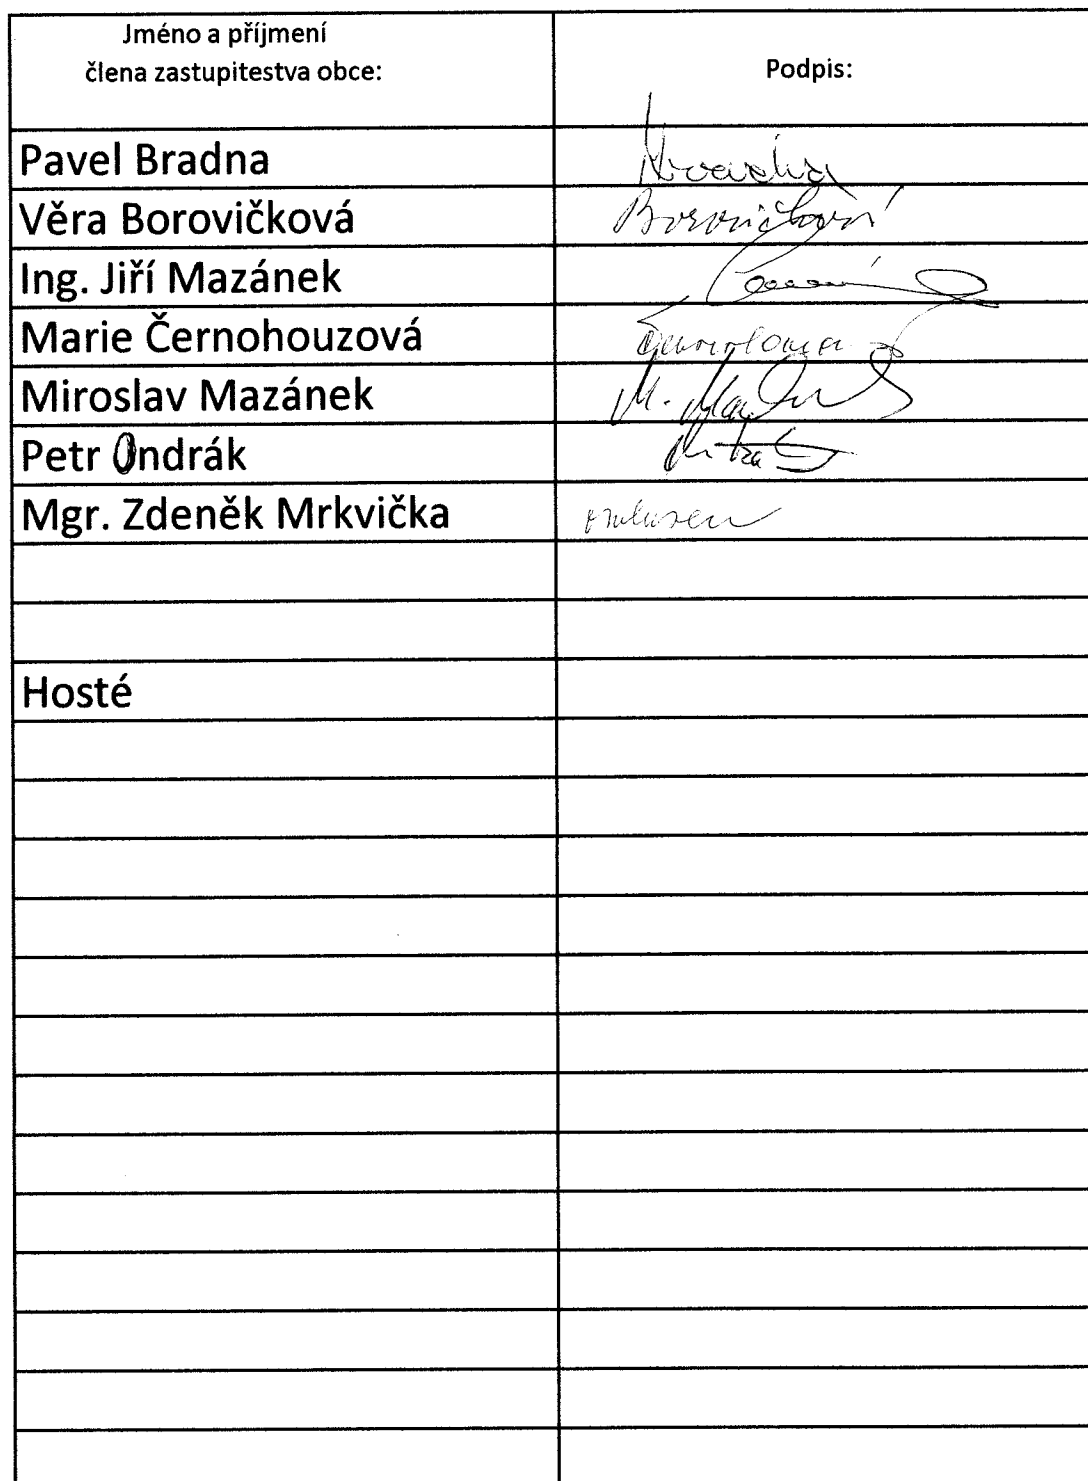 Jméno a příjmení
člena zastupitestva obce:
Podpis:
Pavel Bradna
Věra Borovičková Borovičková
Ing. Jiří Mazánek
Marie Černohouzová
Miroslav Mazánek
Petr Ondrák
Mgr. Zdeněk Mrkvička omluven
Hosté